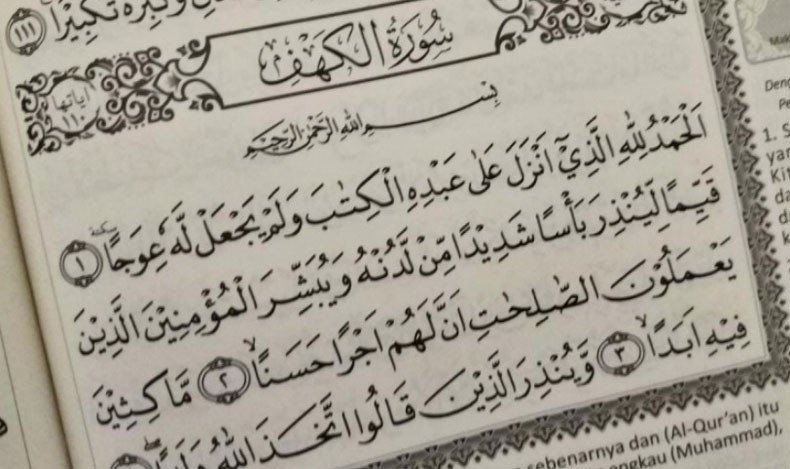 وكبره تكبيرا ١١١
سورة الكهف
اياتها ١١٠
بسم الله الرحمن الرحيم
اَلْحَمْدُ لِلّٰهِ الَّذِيْٓ اَنْزَلَ عَلٰى عَبْدِهِ الْكِتٰبَ وَلَمْ يَجْعَلْ لَّهٗ عِوَجًا ١
قَيِّمًا لِّيُنْذِرَ بَأْسًا شَدِيْدًا مِّنْ لَّدُنْهُ وَيُبَشِّرَ الْمُؤْمِنِيْنَ الَّذِيْنَ
يَعْمَلُوْنَ الصّٰلِحٰتِ اَنَّ لَهُمْ اَجْرًا حَسَنًاۙ ٢ مَّا كِثِيْنَ
فِيْهِ اَبَدًاۙ ٣ وَّيُنْذِرَ الَّذِيْنَ قَالُوا اتَّخَذَ اللّٰهُ وَلَدًا
1.
sebenarnya dan (Al-Qur'an) itu
engkau (Muhammad),